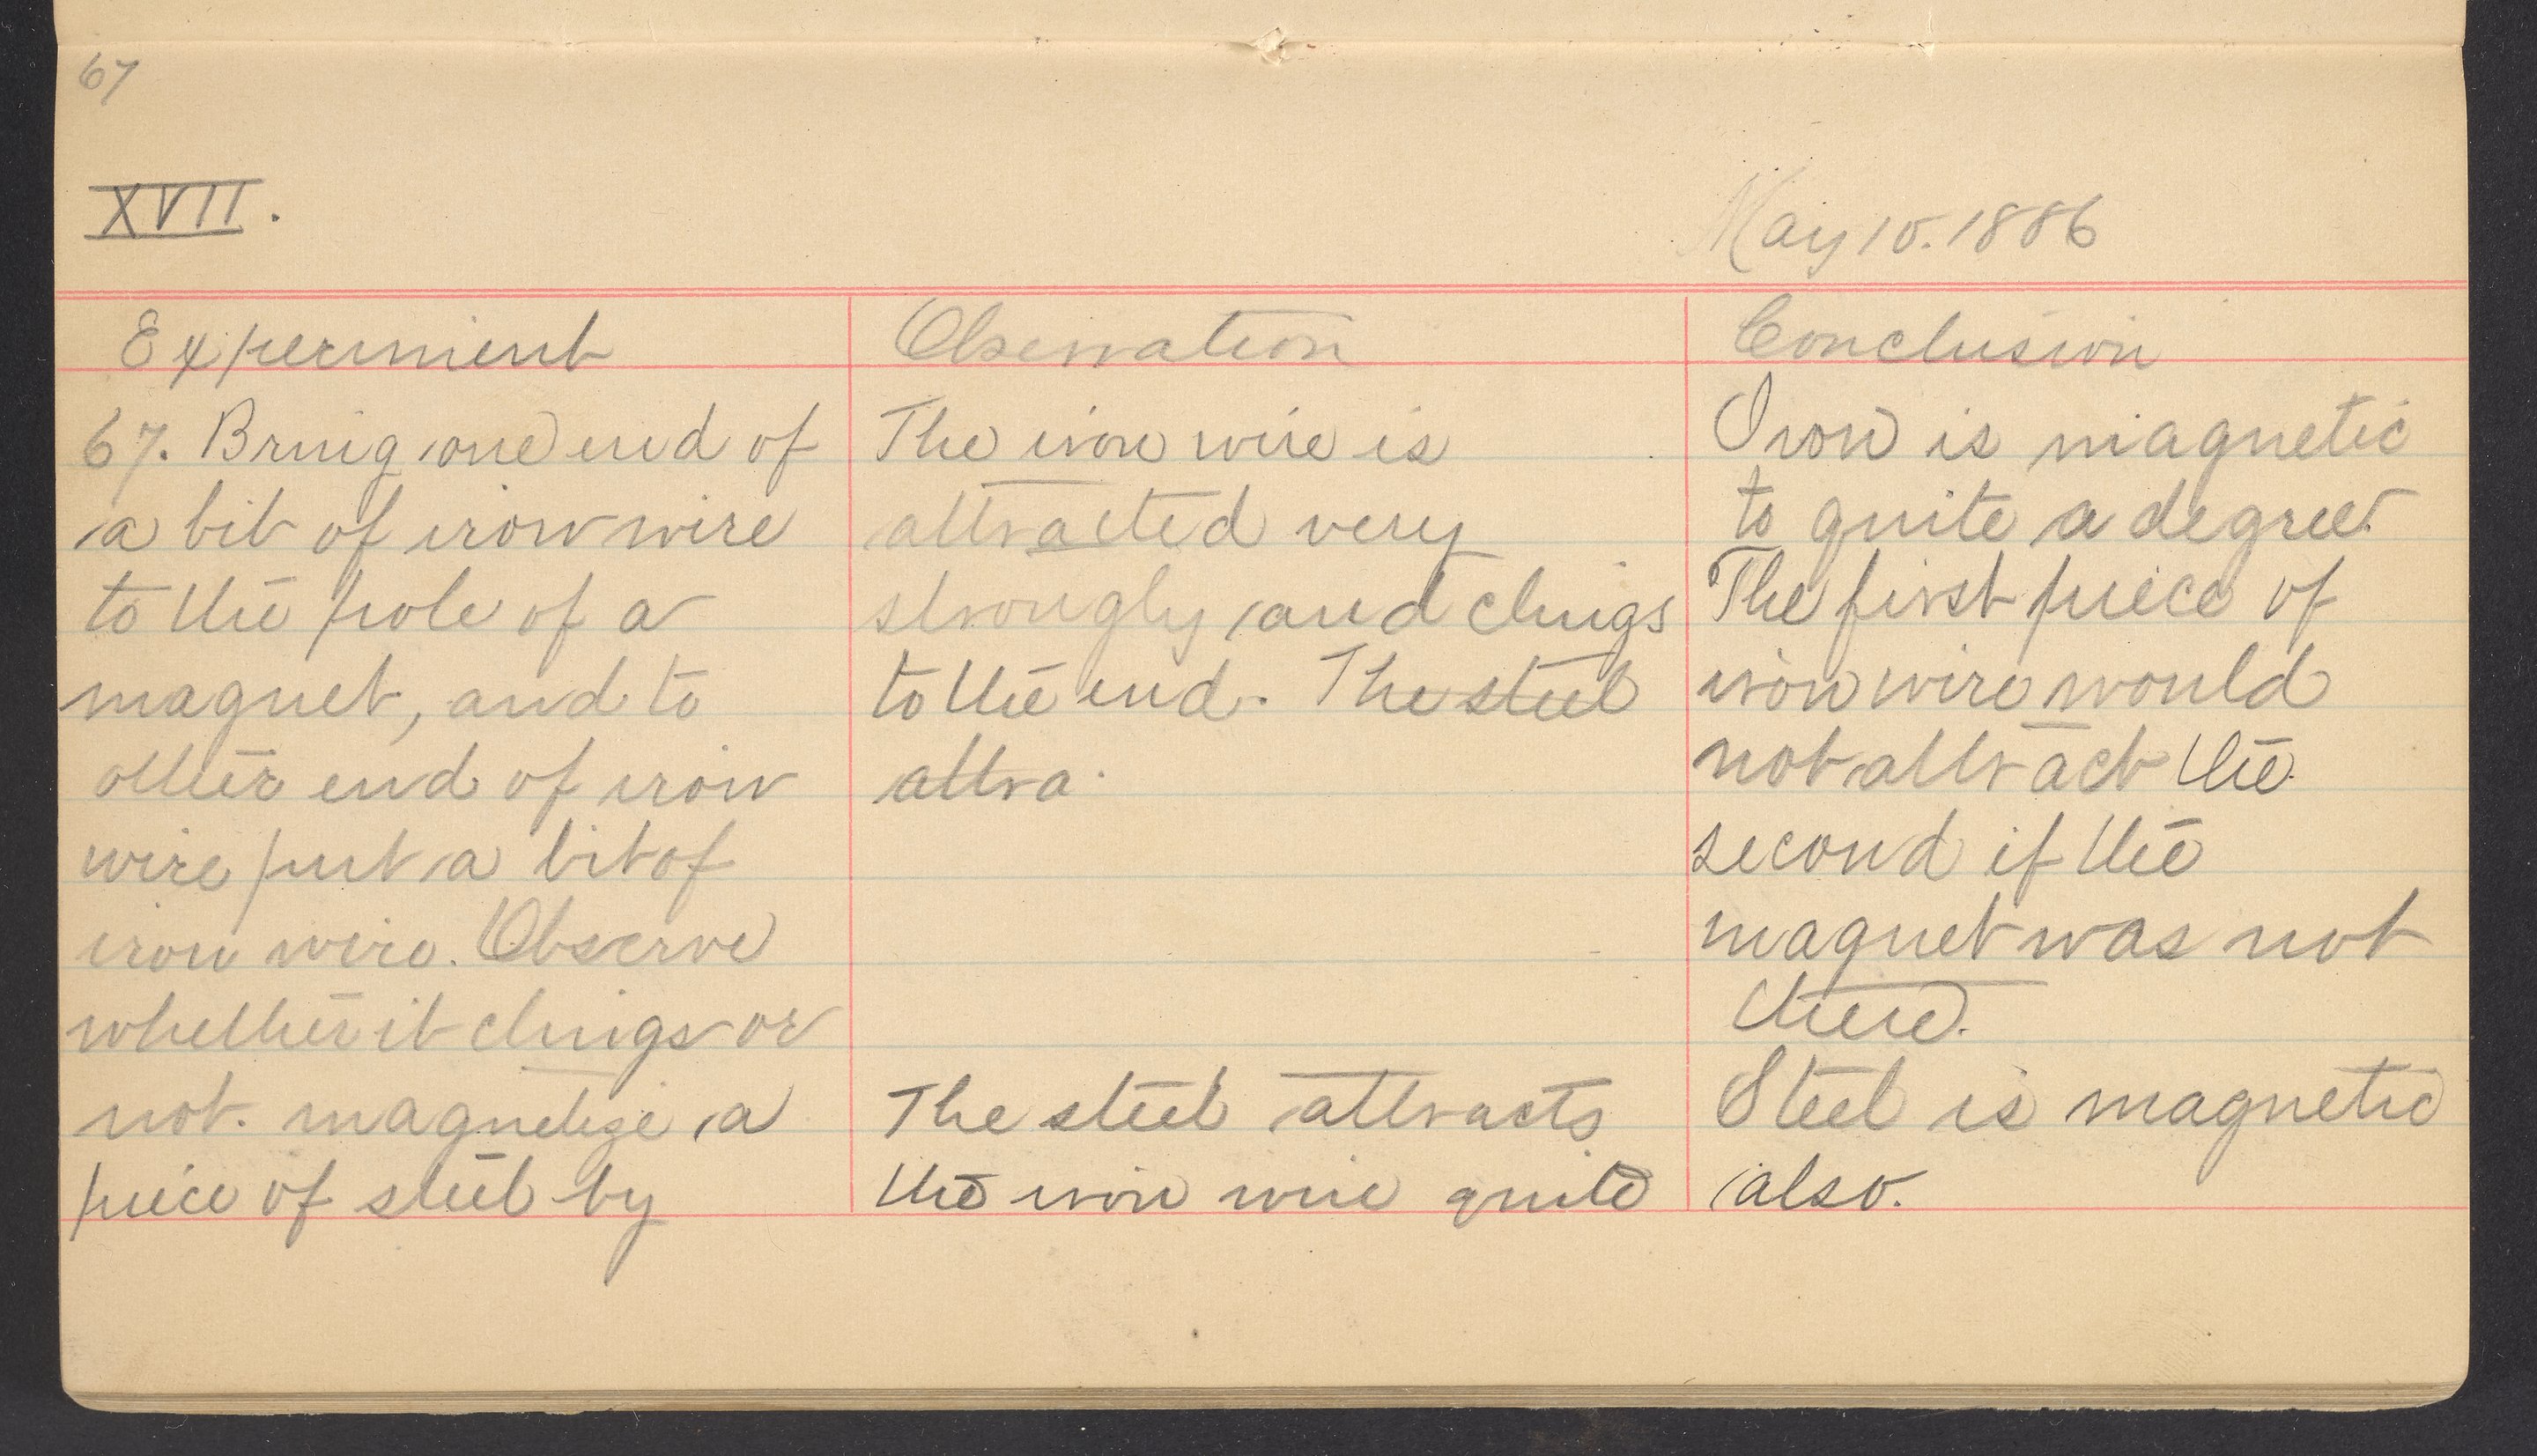 67
XVII.
May 10. 1886
Experiment
67. Bring one end of
a bit of iron wire
to the pole of a
magnet, and to
other end of iron
wire put a bit of
iron wire. Observe
whether it clings or
not. magnetize a
piece of steel by
Observation
The iron wire is
attracted very
strongly and clings
to the end. The steel
attra.
The steel attracts
the iron wire quite
Conclusion
Iron is magnetic
to quite a degree.
The first piece of
iron wire would
not attract the
second if the
magnet was not
there.
Steel is magnetic
also.